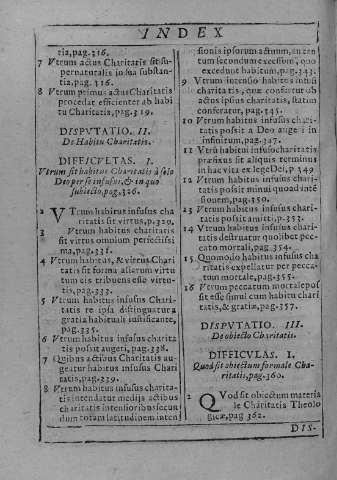 INDEX
tia, pag. 316.
7 Vtrum actus Charitatis sit su-
pernaturalis in sua substan-
tia, pag. 316.
8 Vtrum primus actus Charitatis
procedat efficienter ab habi
tu Charitatis, pag. 319.
DISPVTATIO. II.
De Habitu Charitatis.
DIFFICVLTAS. I.
Vtrum sit habitus Charitatis à solo
Deo per se infusus, & in quo
subiecto, pag. 326.
2 VTrum habitus infusus cha
ritatis sit virtus, p. 329.
3 Vtrum habitus charitatis
sit virtus omnium perfectissi
ma, pag. 331.
4 Vtrum habitus, & virtus Chari
tatis sit forma aliarum virtu
tum eis tribuens esse virtu-
tis, pag. 333.
5 Vtrum habitus infusus Chari-
tatis re ipsa distinguatur a
gratia habituali iustificante,
pag. 335.
6 Vtrum habitus infusus charita
tis possit augeri, pag. 338.
7 Quibus actibus Charitatis au-
geatur habitus infusus Chari
tatis, pag. 339.
8 Vtrum habitus infusus charita-
tis intendatur medijs actibus
charitatis intensioribus secun
dum totam latitudinem inten
sionis ipsorum actuum, an tan
tum secundum excessum, quo
excedunt habitum, pag. 343.
9 Vtrum intensio habitus infusi
charitatis, quæ confertur ob
actus ipsius charitatis, statim
conferatur, pag. 345.
10 Vtrum habitus infusus chari-
tatis possit a Deo augeri in
infinitum, pag. 347.
11 Vtrũ habitui infuso charitatis
præfixus sit aliquis terminus
in hac vita ex lege Dei, p. 349
12 Vtrum habitus infusus Chari
tatis possit minui quoad inté
sionem, pag. 350.
13 Vtrum habitus infusus chari-
tatis possit amitti, p. 353.
14 Vtrum habitus infusus chari-
tatis destruatur quolibet pec-
cato mortali, pag. 354.
15 Quomodo habitus infusus cha
ritatis expellatur per pecca-
tum mortale, pag. 355.
16 Vtrum peccatum mortale pos
sit esse simul cum habitu chari
tatis, & gratiæ, pag. 357.
DISPVTATIO. III.
De obiecto Charitatis.
DIFFICVLAS. I.
Quod sit obiectum formale Cha-
ritatis, pag. 360.
2 QVod sit obiectum materia
le Charitatis Theolo
gicæ, pag 362.
DIS-